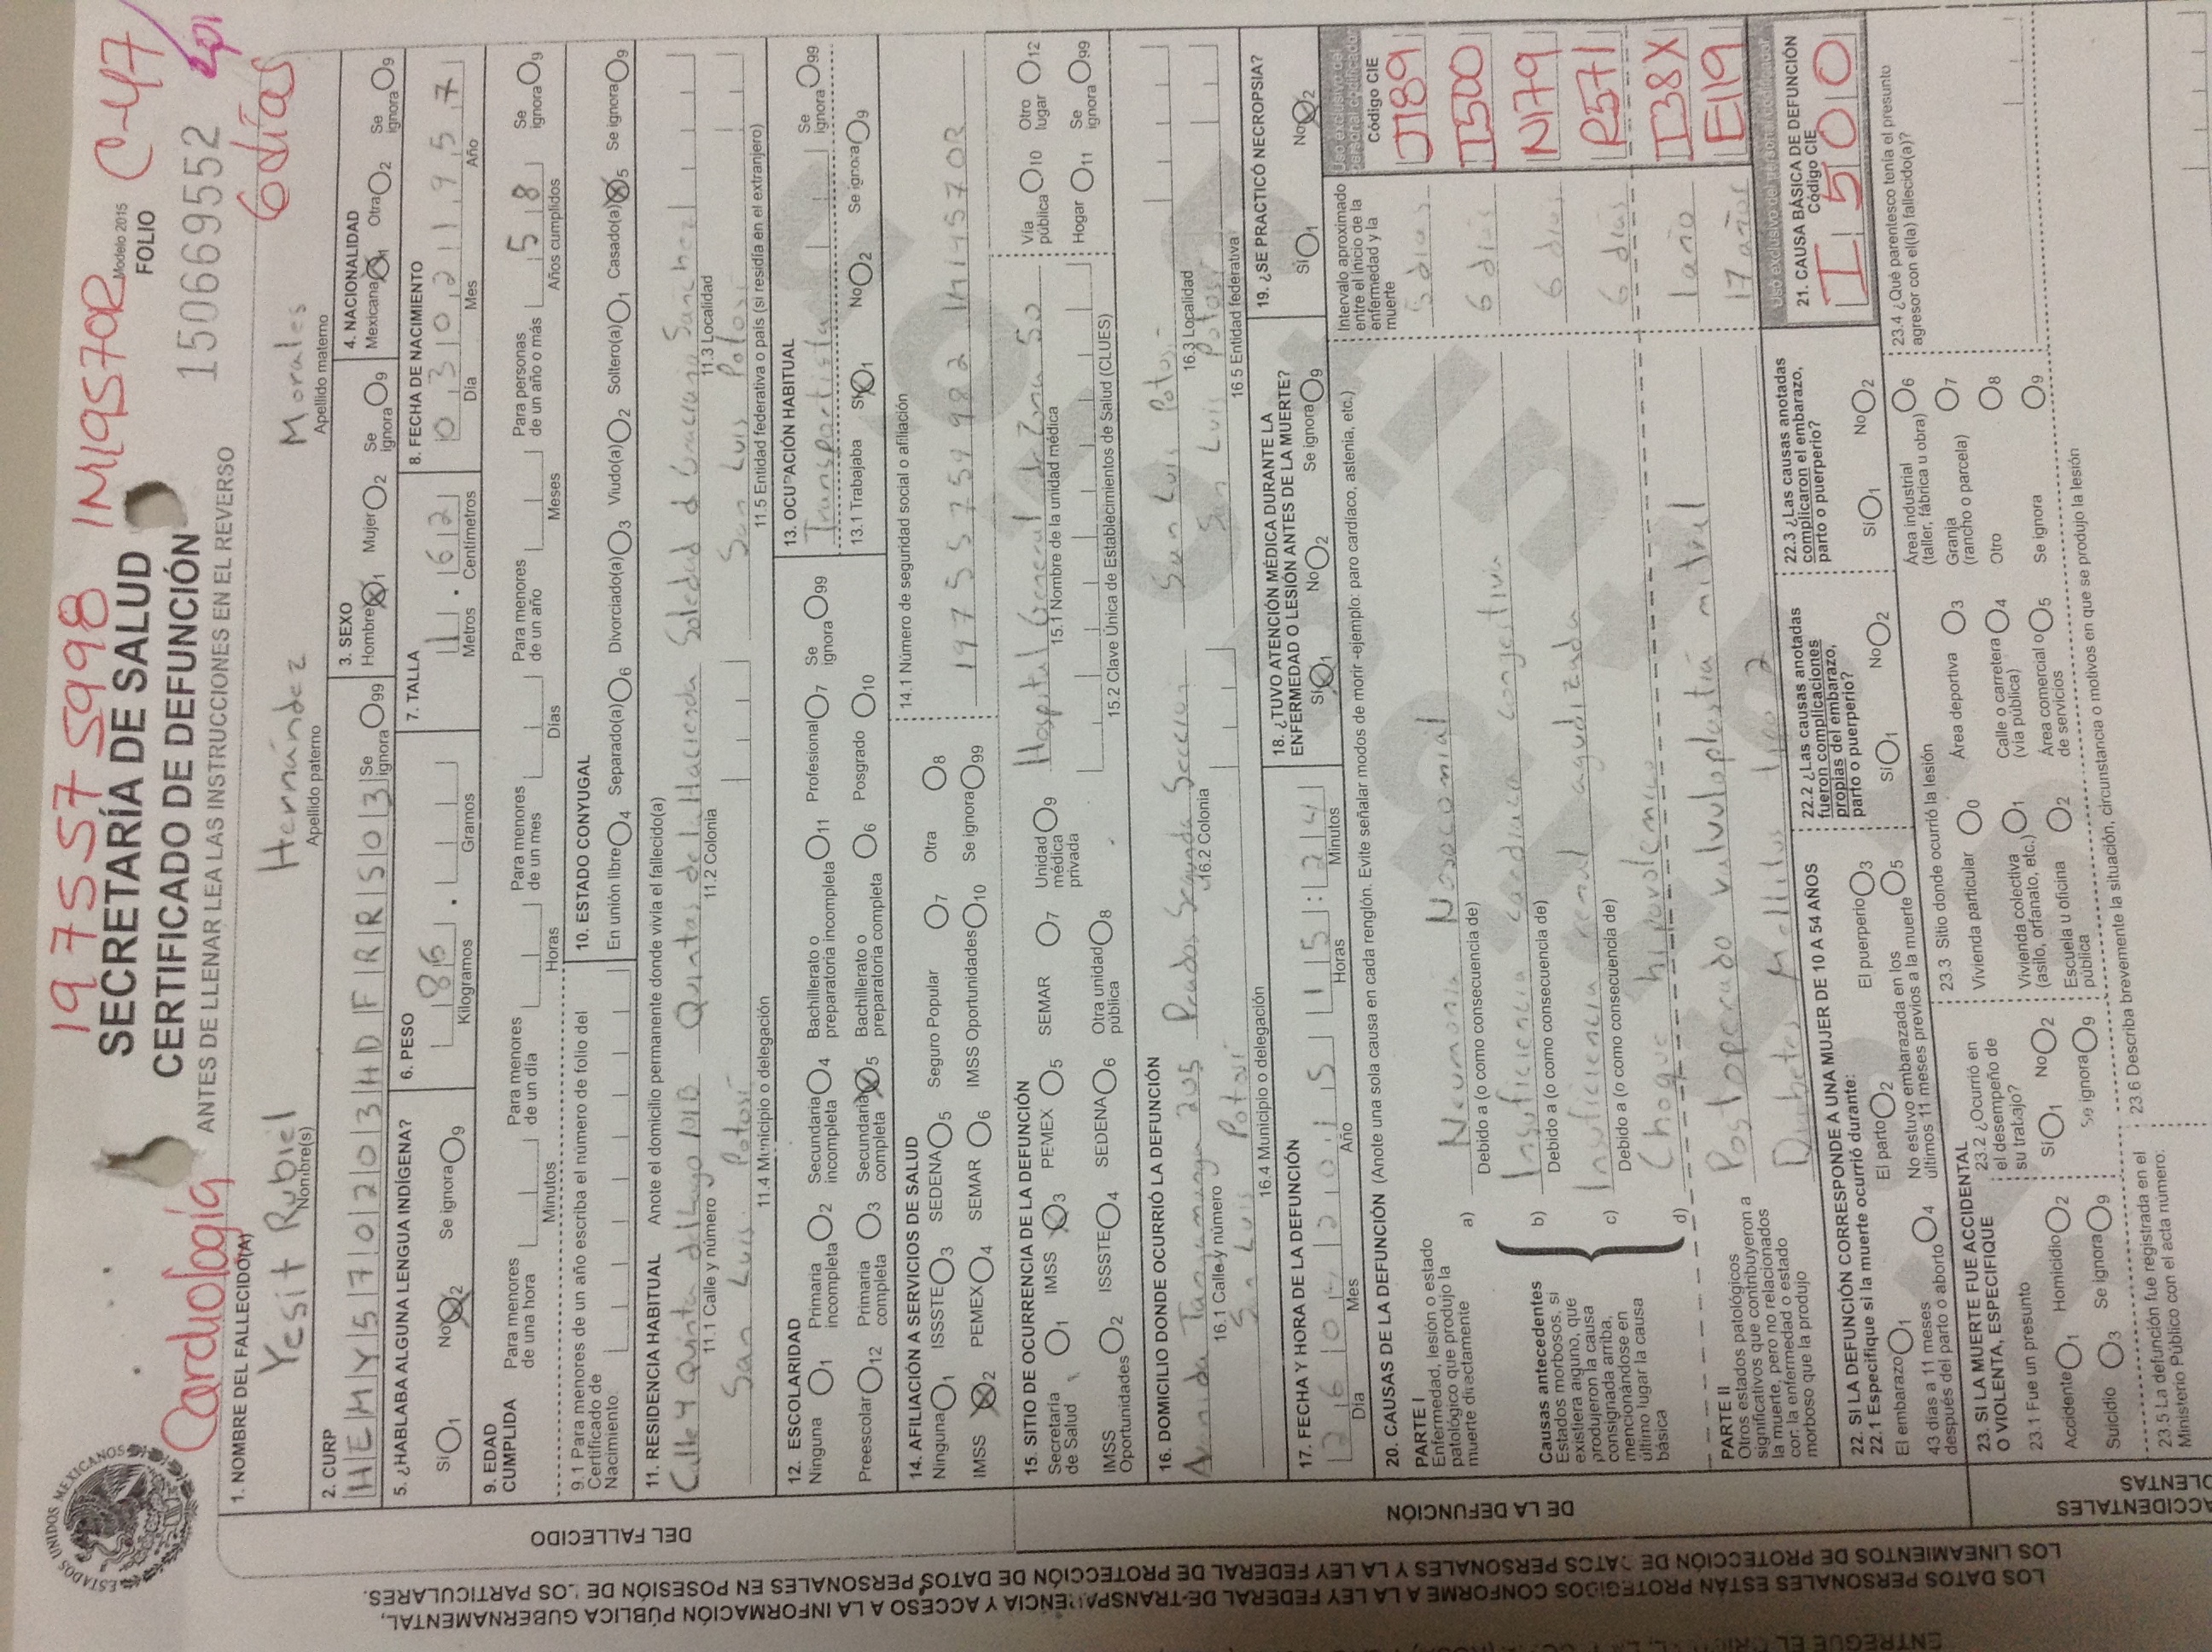 197557 5998 1M1957OR C-47
SECRETARÍA DE SALUD
Modelo 2015
Cardiología CERTIFICADO DE DEFUNCIÓN
FOLIO
150669552
6 días
ANTES DE LLENAR LEA LAS INSTRUCCIONES EN EL REVERSO
ESTADOS UNIDOS MEXICANOS
1. NOMBRE DEL FALLECIDO(A)
Yesit Rubiel Hernández Morales
Nombre(s) Apellido paterno Apellido materno
2. CURP
HEMY570203HDFRRS03 Se ignora 99
3. SEXO
Hombre 1 Mujer 2 Se ignora 9
4. NACIONALIDAD
Mexicana 1 Otra 2 Se ignora 9
5. ¿HABLABA ALGUNA LENGUA INDÍGENA?
Sí 1 No 2 Se ignora 9
6. PESO
86 .
Kilogramos Gramos
7. TALLA
1 . 62
Metros Centímetros
8. FECHA DE NACIMIENTO
03 02 1957
Día Mes Año
9. EDAD CUMPLIDA
Para menores de una hora
Minutos
Para menores de un día
Horas
Para menores de un mes
Días
Para menores de un año
Meses
Para personas de un año o más
58
Años cumplidos
Se ignora 9
9.1 Para menores de un año escriba el número de folio del Certificado de Nacimiento.
10. ESTADO CONYUGAL
En unión libre 4 Separado(a) 6 Divorciado(a) 3 Viudo(a) 2 Soltero(a) 1 Casado(a) 5 Se ignora 9
11. RESIDENCIA HABITUAL Anote el domicilio permanente donde vivía el fallecido(a)
Calle y Quinta del Lago 101B Quintas de la Hacienda Soledad d Graciano Sanchez
11.1 Calle y número 11.2 Colonia 11.3 Localidad
San Luis Potosí San Luis Potosí
11.4 Municipio o delegación 11.5 Entidad federativa o país (si residía en el extranjero)
12. ESCOLARIDAD
Ninguna 1 Primaria incompleta 2 Secundaria incompleta 4 Bachillerato o preparatoria incompleta 11 Profesional 7 Se ignora 99
Preescolar 12 Primaria completa 3 Secundaria completa 5 Bachillerato o preparatoria completa 6 Posgrado 10
13. OCUPACIÓN HABITUAL
Transportista Se ignora 99
13.1 Trabajaba Sí 1 No 2 Se ignora 9
14. AFILIACIÓN A SERVICIOS DE SALUD
Ninguna 1 ISSSTE 3 SEDENA 5 Seguro Popular 7 Otra 8
IMSS 2 PEMEX 4 SEMAR 6 IMSS Oportunidades 10 Se ignora 99
14.1 Número de seguridad social o afiliación
15. SITIO DE OCURRENCIA DE LA DEFUNCIÓN
Secretaría de Salud 1 IMSS 3 PEMEX 5 SEMAR 7 Unidad médica privada 9
IMSS Oportunidades 2 ISSSTE 4 SEDENA 6 Otra unidad pública 8
Hospital General de Zona 50
15.1 Nombre de la unidad médica
15.2 Clave Única de Establecimientos de Salud (CLUES)
Vía pública 10 Otro lugar 12
Hogar 11 Se ignora 99
16. DOMICILIO DONDE OCURRIÓ LA DEFUNCIÓN
Avenida Tangamanga 205 Prados Segunda Sección San Luis Potosí
16.1 Calle y número 16.2 Colonia 16.3 Localidad
San Luis Potosí San Luis Potosí
16.4 Municipio o delegación 16.5 Entidad federativa
17. FECHA Y HORA DE LA DEFUNCIÓN
2015 15:24
Día Mes Año Horas Minutos
18. ¿TUVO ATENCIÓN MÉDICA DURANTE LA ENFERMEDAD O LESIÓN ANTES DE LA MUERTE?
Sí 1 No 2 Se ignora 9
19. ¿SE PRACTICÓ NECROPSIA?
Sí 1 No 2
20. CAUSAS DE LA DEFUNCIÓN (Anote una sola causa en cada renglón. Evite señalar modos de morir -ejemplo: paro cardiaco, astenia, etc.)
Intervalo aproximado entre el inicio de la enfermedad y la muerte
Uso exclusivo del personal codificador
Código CIE
PARTE I
Enfermedad, lesión o estado patológico que produjo la muerte directamente
a) Neumonia Nosocomial 5 dias J189
Debido a (o como consecuencia de)
Causas antecedentes
Estados morbosos, si existiera alguno, que produjeron la causa consignada arriba, mencionándose en último lugar la causa básica
b) Insuficiencia cardiaca congestiva 6 dias I500
Debido a (o como consecuencia de)
c) Insuficiencia renal agudizada 6 dias N179
Debido a (o como consecuencia de)
d) Choque hipovolemico 6 dias R571
PARTE II
Otros estados patológicos significativos que contribuyeron a la muerte, pero no relacionados con la enfermedad o estado morboso que la produjo
Postoperado valvuloplastia mitral 1 año I38X
Diabetes Mellitus tipo 2 17 años E119
Uso exclusivo del personal codificador
21. CAUSA BÁSICA DE DEFUNCIÓN
Código CIE
I500
22. SI LA DEFUNCIÓN CORRESPONDE A UNA MUJER DE 10 A 54 AÑOS
22.1 Especifique si la muerte ocurrió durante:
El embarazo 1 El parto 2 El puerperio 3
43 días a 11 meses después del parto o aborto 4 No estuvo embarazada en los últimos 11 meses previos a la muerte 5
22.2 ¿Las causas anotadas fueron complicaciones propias del embarazo, parto o puerperio?
Sí 1 No 2
22.3 ¿Las causas anotadas complicaron el embarazo, parto o puerperio?
Sí 1 No 2
23. SI LA MUERTE FUE ACCIDENTAL O VIOLENTA, ESPECIFIQUE
23.1 Fue un presunto
Accidente 1 Homicidio 2
Suicidio 3 Se ignora 9
23.2 ¿Ocurrió en el desempeño de su trabajo?
Sí 1 No 2
Se ignora 9
23.3 Sitio donde ocurrió la lesión
Vivienda particular 0 Área deportiva 3 Área industrial (taller, fábrica u obra) 6
Vivienda colectiva (asilo, orfanato, etc.) 1 Calle o carretera (vía pública) 4 Granja (rancho o parcela) 7
Escuela u oficina pública 2 Área comercial o de servicios 5 Otro 8
Se ignora 9
23.4 ¿Qué parentesco tenía el presunto agresor con el(la) fallecido(a)?
23.5 La defunción fue registrada en el Ministerio Público con el acta número:
23.6 Describa brevemente la situación, circunstancia o motivos en que se produjo la lesión
DEL FALLECIDO
DE LA DEFUNCIÓN
ACCIDENTALES
LOS DATOS PERSONALES ESTÁN PROTEGIDOS CONFORME A LA LEY FEDERAL DE TRANSPARENCIA Y ACCESO A LA INFORMACIÓN PÚBLICA GUBERNAMENTAL,
LOS LINEAMIENTOS DE PROTECCIÓN DE DATOS PERSONALES Y LA LEY FEDERAL DE PROTECCIÓN DE DATOS PERSONALES EN POSESIÓN DE LOS PARTICULARES.